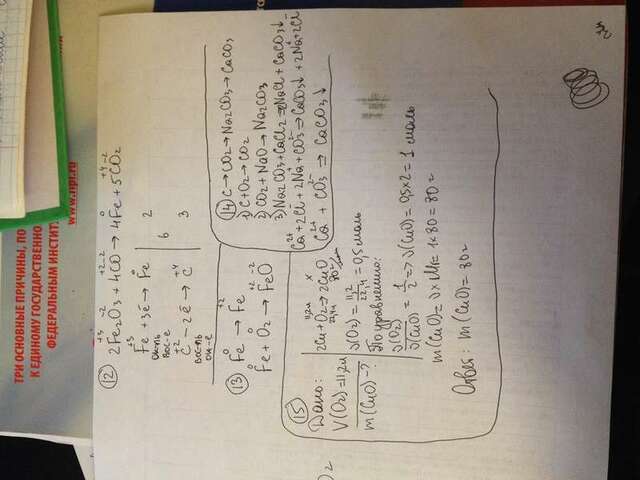 ТРИ ОСНОВНЫЕ ПРИЧИНЫ, ПО
К ЕДИНОМУ ГОСУДАРСТВЕННО
ФЕДЕРАЛЬНЫЙ ИНСТИТ
www.fipi.ru
12
+3 -2 +2 -2 0 +4 -2
2Fe2O3 + 4CO → 4Fe + 5CO2
+3 0
Fe + 3ē → Fe | | 2
ок-ль
восс-е 6
+2 +4
C - 2ē → C | | 3
восс-ль
ок-е
13
0 +2
Fe → Fe
0 0 +2 -2
Fe + O2 → FeO
14 C → CO2 → Na2CO3 → CaCO3
1) C + O2 → CO2
2) CO2 + NaO → Na2CO3
3) Na2CO3 + CaCl2 → NaCl + CaCO3↓
Ca2+ + 2Cl- + 2Na+ + CO32- → CaCO3↓ + 2Na+ + 2Cl-
Ca2+ + CO32- → CaCO3↓
15
Дано:
V(O2) = 11,2л
m(CuO) - ?
11,2л x
2Cu + O2 → 2CuO
22,4
ν(O2) = 11,2/22,4 = 0,5 моль
По уравнению:
ν(O2)/ν(CuO) = 1/2 => ν(CuO) = 0,5 x 2 = 1 моль
m(CuO) = ν x M = 1 x 80 = 80 г
Ответ: m(CuO) = 80 г